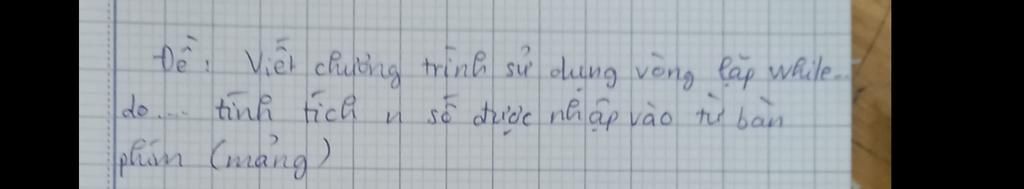 Đề: Viết chương trình sử dụng vòng lặp while...
do... tính tích n số được nhập vào từ bàn
phím (mảng)